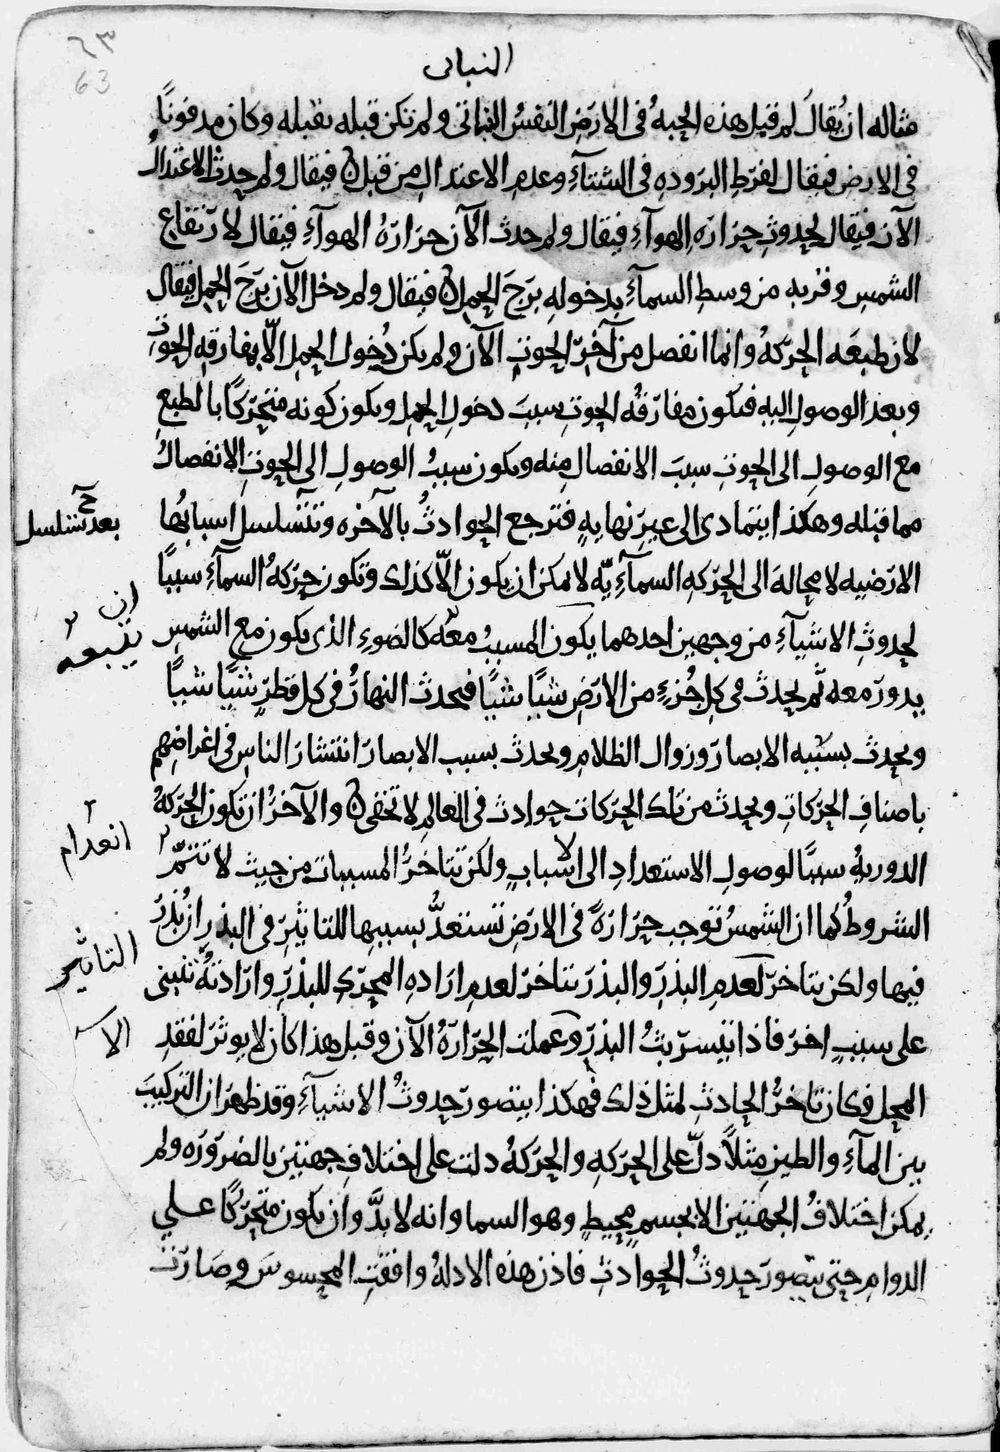 ٦٣
63
النباتى
مثاله ان يُقالَ لم قبل هذه الحبهُ فى الارَضِ النفسُ النباتى ولم تكن قبله تقبله وكان مدفونًا
فى الارض فيقال لفرَطِ البرَوده فى الشتآءِ وعدم الاعتدال من قبل ں فيقال ولم حدث الاعتدالُ
الآن فيقال لحدوثِ حرَارَه الهوآءِ فيقال ولم حدث الآن حرَارَهُ الهوآءِ فيقال لارَتفاع
الشمس وقربه من وسط السمآءِ بدخوله برَجَ الحمل ں فيقال ولم دخل الآن برَجَ الحمل فيقال
لان طبعَه الحرَكهُ وانما انفصل من آخرِ الحوتِ الآن ولم يكن دُخول الحمل الّا بمفارَقهِ الحوتِ
وبعد الوصولِ اليه فيكون مفارَقهُ الحوتِ سببَ دخولِ الحمل ويكون كونه متحرّكًا بالطبع
مع الوصولِ الى الحوتِ سببَ الانفصال منه ويكون سببُ الوصولِ الى الحوتِ الانفصالُ
مما قبله وهكذا يتمادى الى غيرِ نهايهٍ فترجع الحوادثُ بالآخره وتتسلسل اسبابُها
بعد تسلسل
الارَضيه لا محالهَ الى الحرَكه السمآءِيّه لا يمكن ان يكون الّا كذلك وتكون حرَكهُ السمآءِ سببًا
لحدوثِ الاشيآءِ من وجهين احدهما يكون المسببُ معه كالضوءِ الذى يكون مع الشمس
ان
يتبعه
يدورَ معه ثم يحدث فى كل جُزءٍ من الارَضِ شيًا شيًا فيحدث النهارُ فى كل قطرٍ شيًا شيًا
ويحدث بسببه الابصارَ وزوال الظلام ويحدث بسبب الابصارَ انتشارَ الناسِ فى اغراضهم
باصنافِ الحرَكاتِ ويحدث من تلك الحرَكات حوادث فى العالم لا تخفى ں والآخرُ ان تكون الحرَكهُ
الدوريهُ سببًا لوصول الاستعدادِ الى الاسبابِ ولكن تتاخرُ المسببات من حيث لا تتمّ
انعدام
الشروطُ كما ان الشمسُ توجب حرَارَهً فى الارَضِ تستعدُّ بسببها للتاثيرَ فى البذرِ ان بُذرَ
فيها ولكن يتاخرّ لعدم البذرَ والبذرَ يتاخرّ لعدم ارَاده المحرّكِ للبذرَ وارَادتهُ تنبنى
التاثير
على سببٍ اخرَ فاذا تيسرّ بثُ البذرَ وعملت الحرَارَهُ الآن وقبل هذا كان لا يوثرَ لفقدِ
الا
المحل فكان تاخرُ الحادثِ لمثل ذلك فهكذا يتصورَ حدوثُ الاشيآءِ وقد ظهرَ ان الترَكيبَ
بين المآءِ والطين مثلاً دلّ على الحرَكهِ والحرَكهُ دلت على اختلافِ جهتين بالضرَورَه ولم
يمكن اختلافُ الجهتين الا بجسمٍ محيطٍ وهو السما وانه لا بدَّ وان يكون متحرّكًا على
الدوام حتى يتصورَ حدوثُ الحوادثِ فاذن هذه الادلهُ وافقتِ المحسوسَ وصارَت